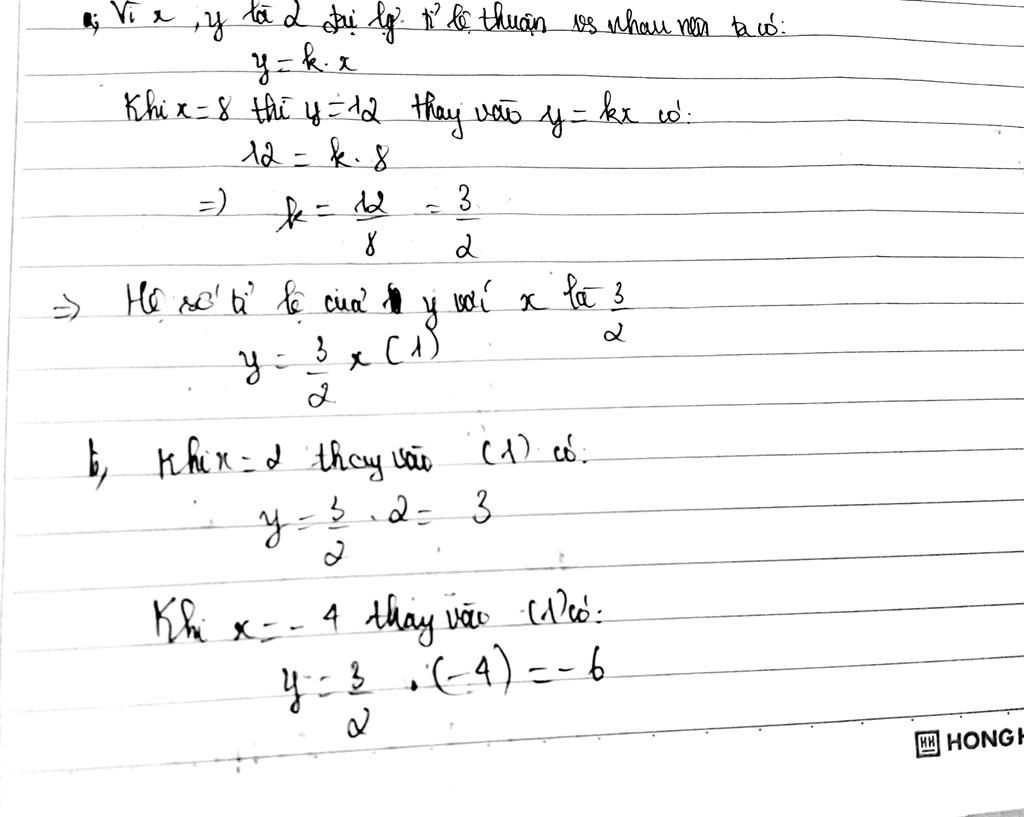 a, Vì x, y là 2 đại lg tỉ lệ thuận vs nhau nên ta có:
y = k. x
Khi x = 8 thì y = 12 thay vào y = kx có:
12 = k. 8
=) k = 12/8 = 3/2
=> Hệ số tỉ lệ của y với x là 3/2
y = 3/2 x (1)
b, Khi x = 2 thay vào (1) có:
y = 3/2 . 2 = 3
Khi x = - 4 thay vào (1) có:
y = 3/2 . (-4) = - 6
HH HONGH